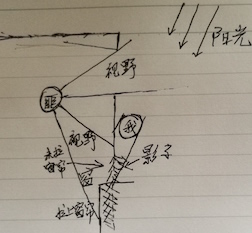 阳光
视野
匪
我
视野
影子
未拉
窗帘
拉上窗帘